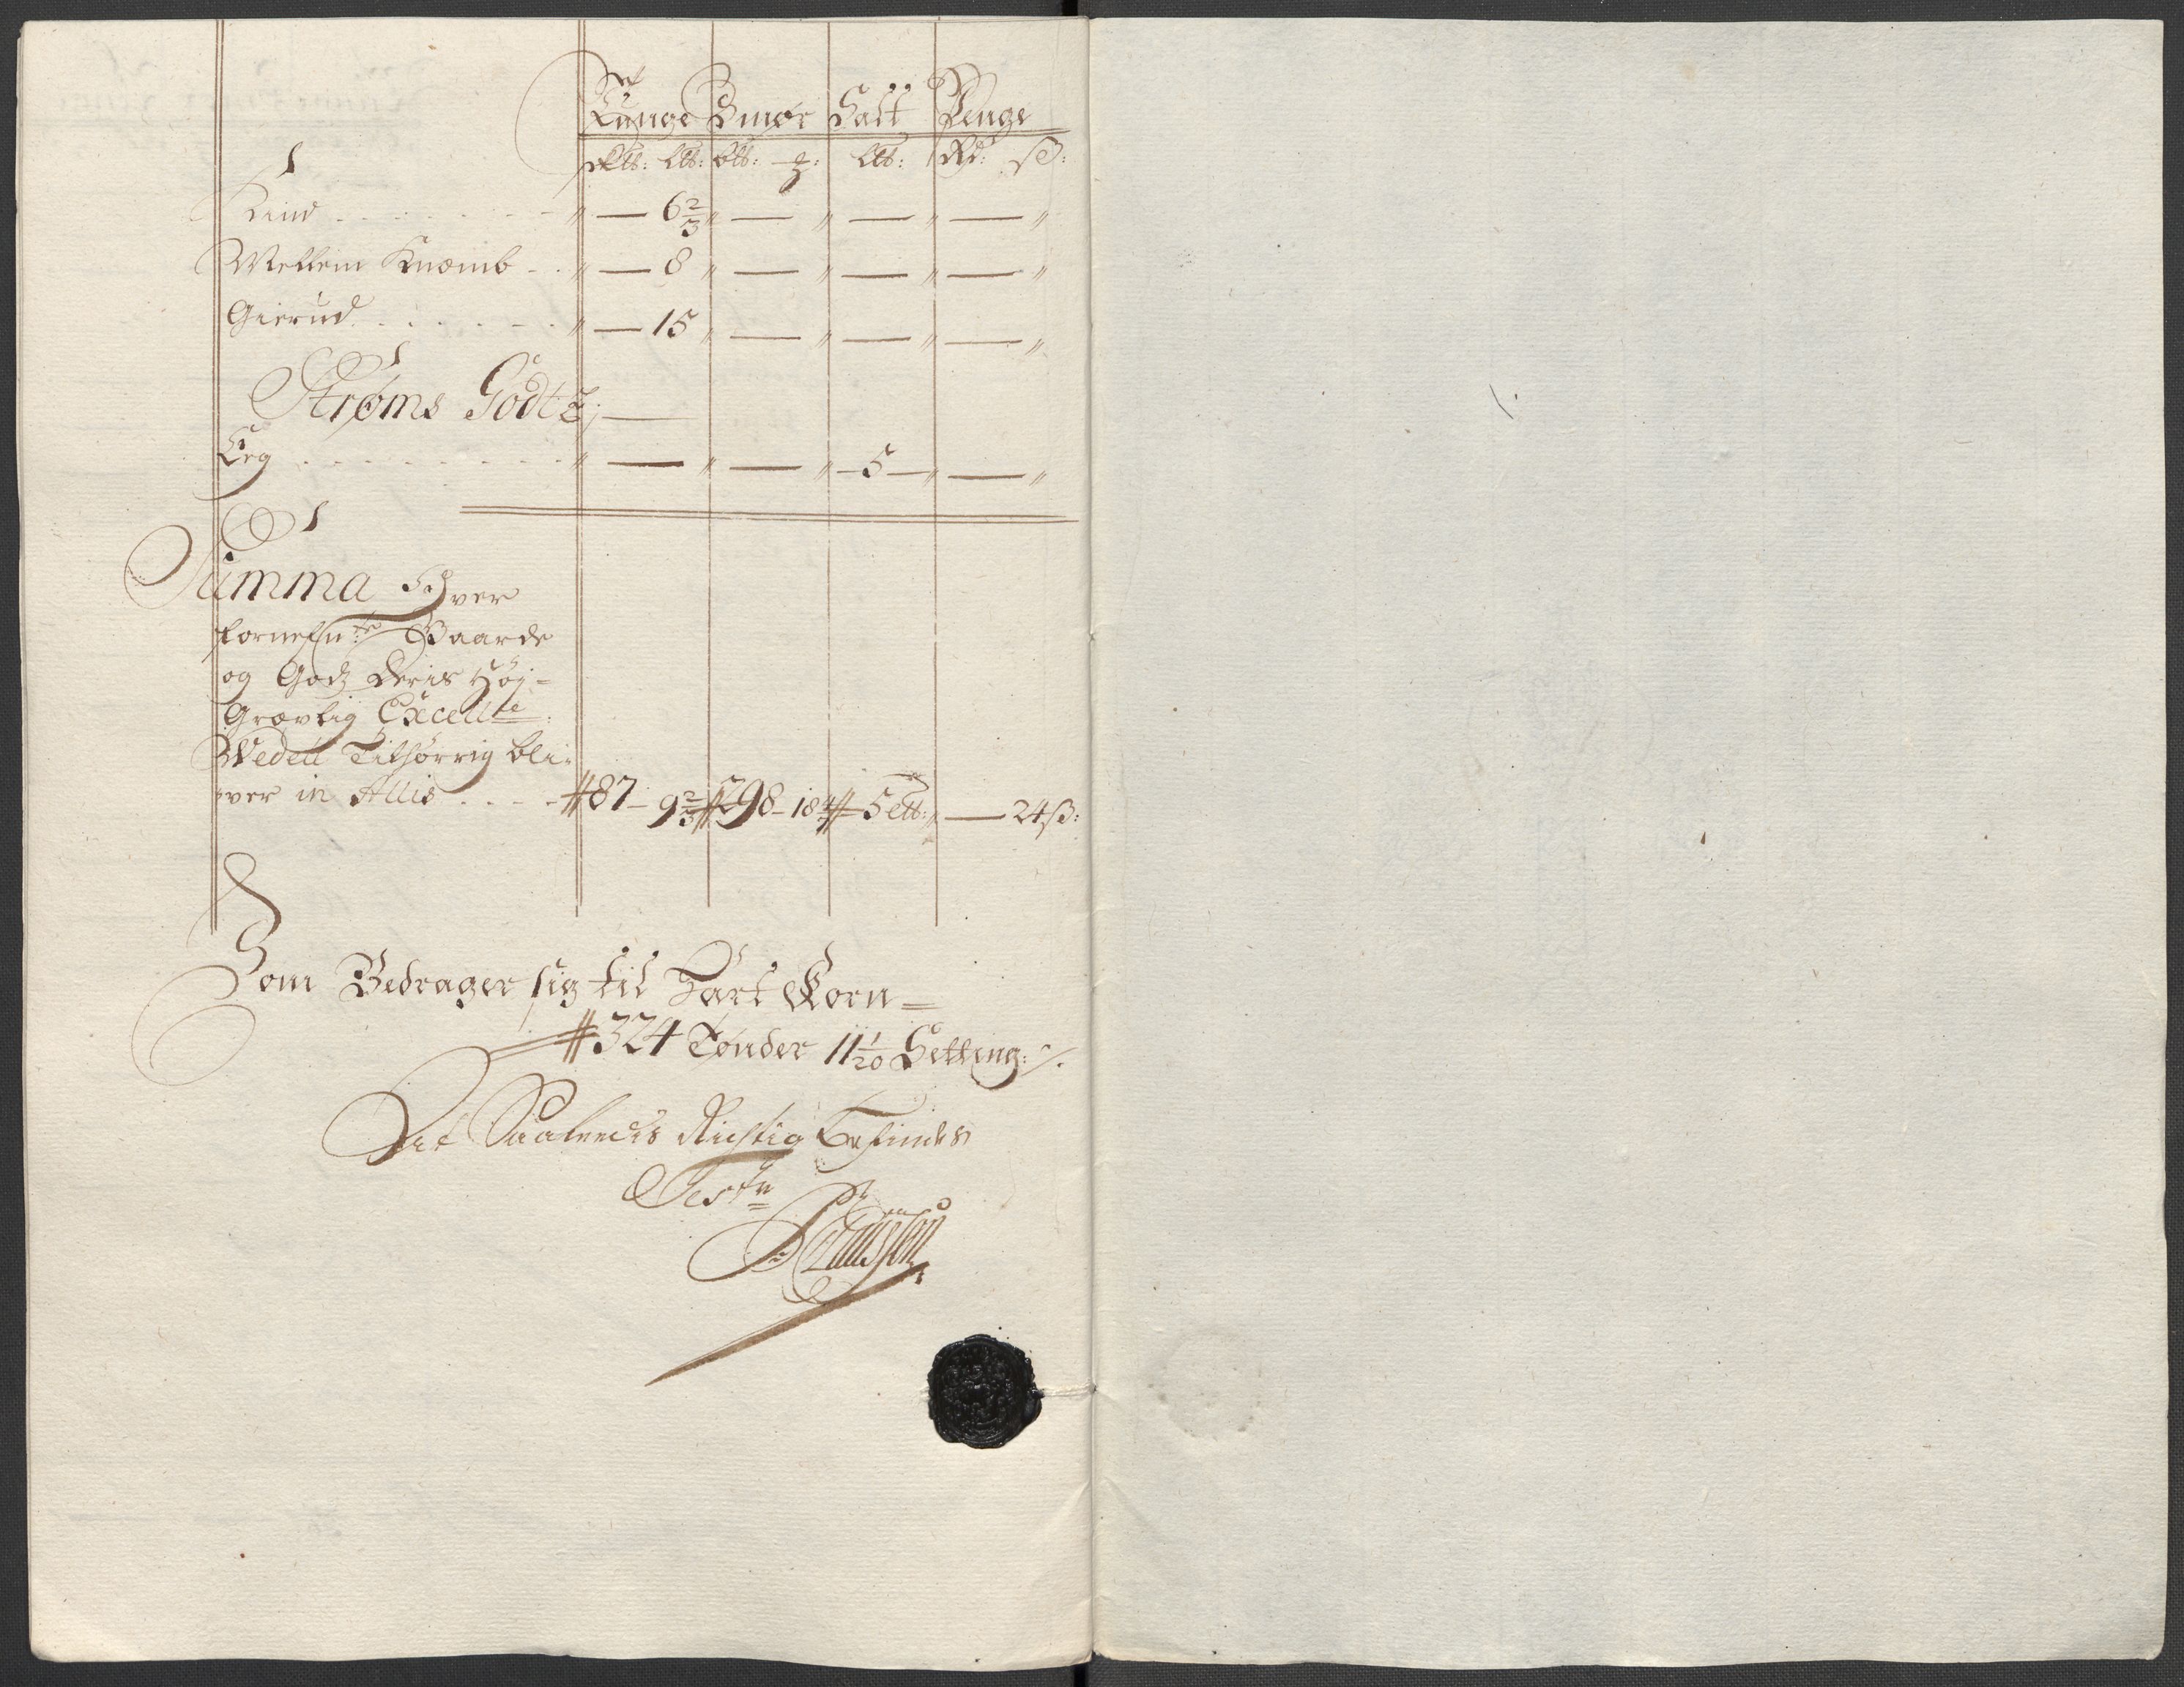 Tunge Smør Salt Penge
L℔: B℔: L℔: Rd: ß:
Lind . . . . . . . " — 6 2/3 " — " — " — "
Mellem . . " — 8 " — " — " — "
Gierud . . . . . . " — 15 " — " — " — "
Strøms Godtz ; —
Leg . . . . . . . . . " — " — " 5 — " — "
Summa
fornefnte Gaarde
og Godz Deris Høj-
Grævlig Excellce:
Wedell Tilhørrig bli-
ver in Allis . . . . # 87 – 9 2/3 # 298 – 18 # 5 L℔: " — 24 ß:
Som Bedrager sig til Hart Korn =
# 324 Tønder 11 1/20 Setting: /.
Det Saaledis Rigtig Befindes
Teste